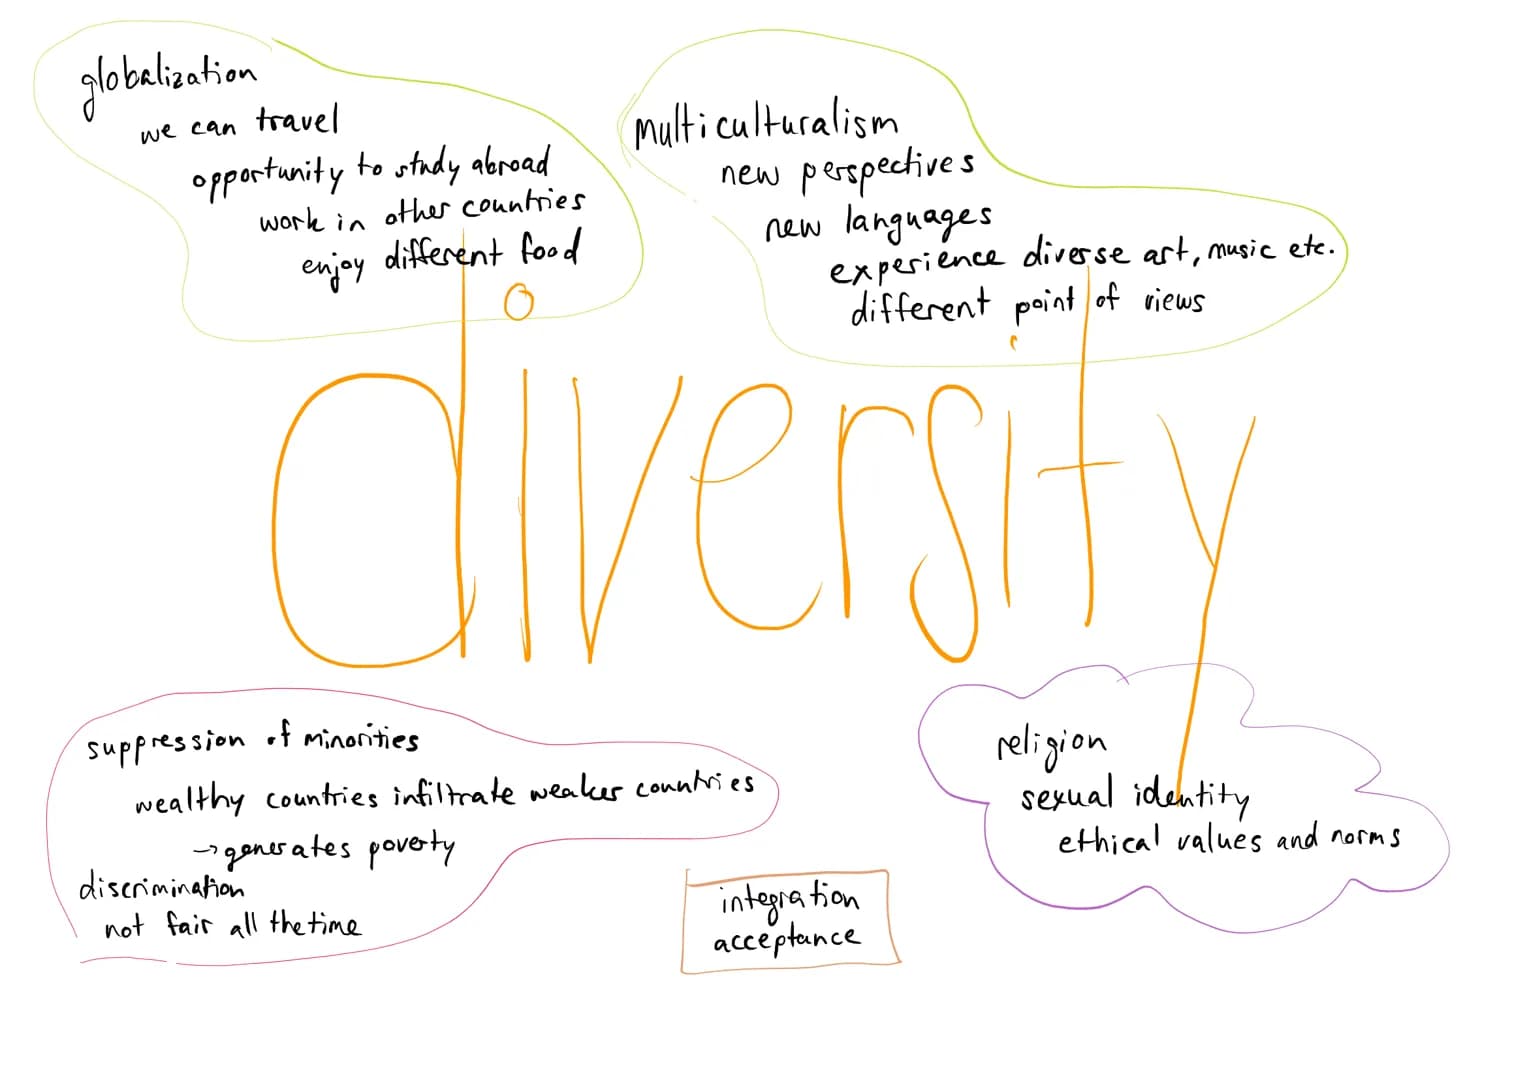 globalization
we can travel
opportunity to study abroad
work in other countries
enjoy different food
multiculturalism
new perspectives
new languages
experience diverse art, music etc.
different point of views
diversity
suppression of minorities
wealthy countries infiltrate weaker countries
→ generates poverty
discrimination
not fair all the time
integration
acceptance
religion
sexual identity
ethical values and norms